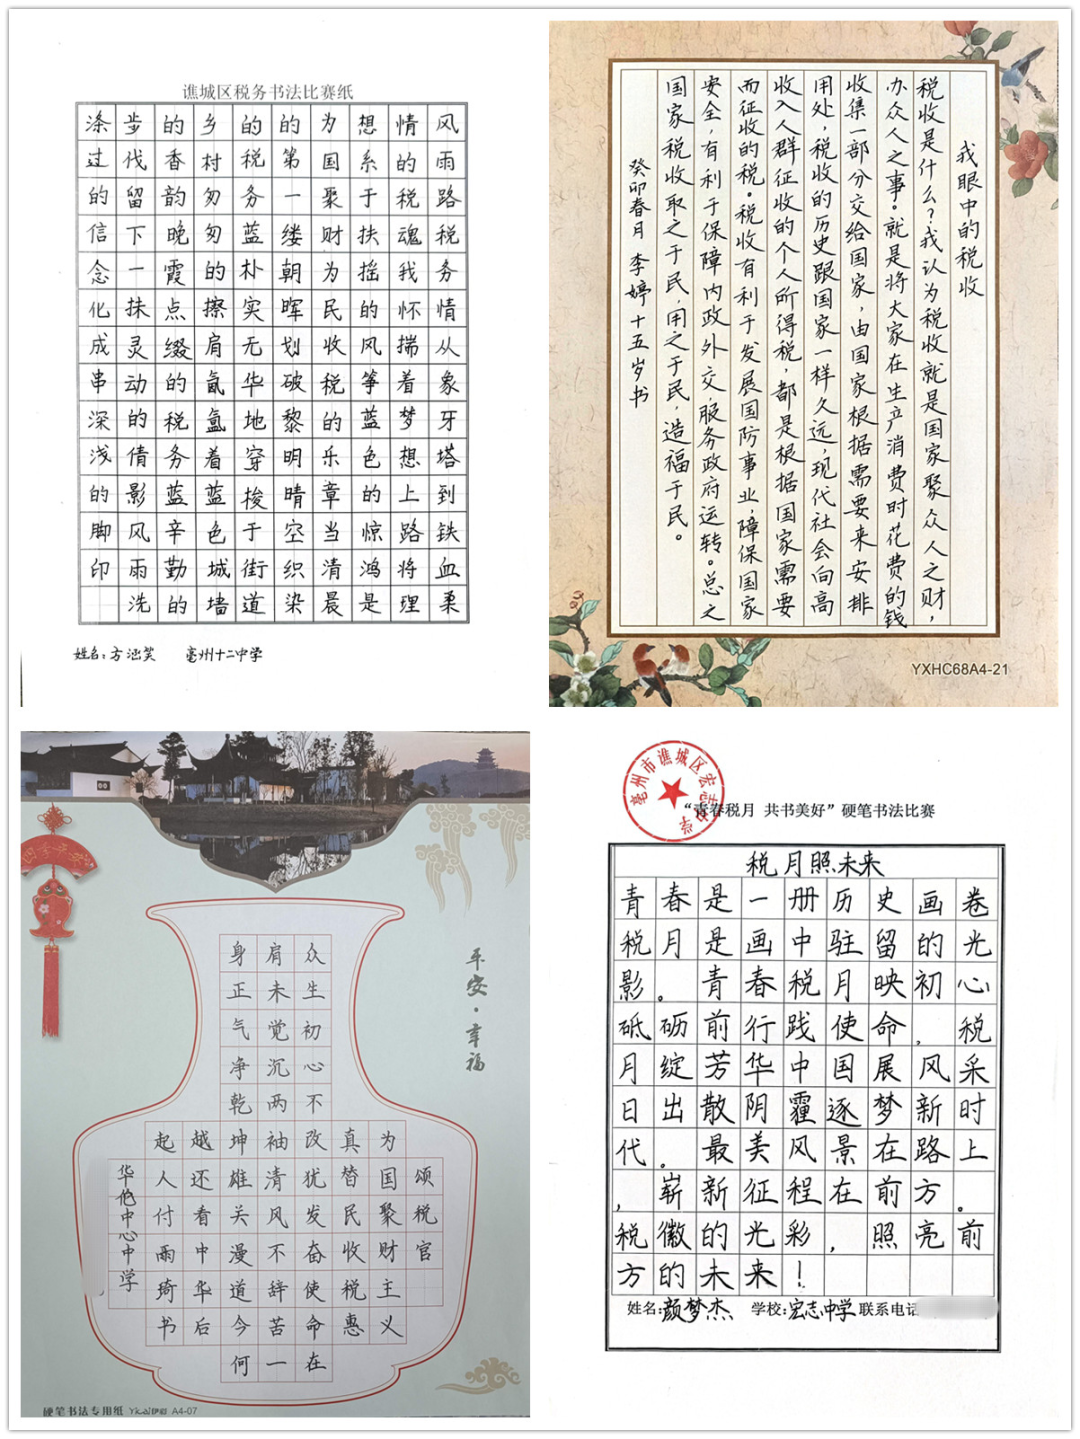 谯城区税务书法比赛纸
风雨路税务情从象牙塔到铁血柔
情的税魂我怀揣着梦想上路将理
想系于扶摇的风筝蓝色的惊鸿是
为国聚财为民收税的乐章当清晨
的第一缕朝晖划破黎明晴空织染
的税务蓝朴实无华地穿梭于街道
乡村匆匆的擦肩氤氲着蓝色城墙
的香韵晚霞点缀的税务蓝辛勤的
步伐留下一抹灵动的倩影风雨洗
涤过的信念化成串深浅的脚印
姓名:方 笑 亳州十二中学
我眼中的税收
税收是什么?我认为税收就是国家聚众人之财,
办众人之事。就是将大家在生产消费时花费的钱
收集一部分交给国家,由国家根据需要来安排
用处,税收的历史跟国家一样久远,现代社会向高
收入人群征收的个人所得税,都是根据国家需要
而征收的税。税收有利于发展国防事业,障保国家
安全,有利于保障内政外交,服务政府运转。总之
国家税收取之于民,用之于民,造福于民。
癸卯春月 李婷十五岁书
YXHC68A4-21
平安·幸福
颂税官
为国聚财主义
真替民收税惠
众生初心不改犹发奋使命在
肩未觉沉两袖清风不辞苦一
身正气净乾坤雄关漫道今何
越还看中华后
起人付雨琦书
华佗中心中学
硬笔书法专用纸 A4-07
亳州市谯城区宏志中学
“青春税月 共书美好”硬笔书法比赛
税月照未来
青春是一册历史画卷
税月是画中驻留的光
影。青春税月映初心
砥砺前行践使命,税
月绽芳华中国展风采
日出散阴霾逐梦新时
代。最美风景在路上
,崭新征程在前方。
税徽的光彩,照亮前
方的未来!
姓名:颜梦杰 学校:宏志中学 联系电话